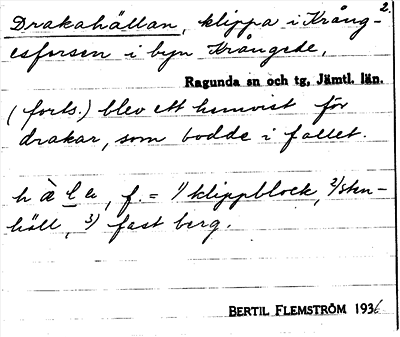 2.
Drakahällan, klippa i Krång-
esforsen i byn Krångede,
Ragunda sn och tg, Jämtl. län.
(forts.) blev ett hemvist för
drakar, som bodde i fallet.
hàla, f. = 1) klippblock, 2) sten-
häll, 3) fast berg.
BERTIL FLEMSTRÖM 1936